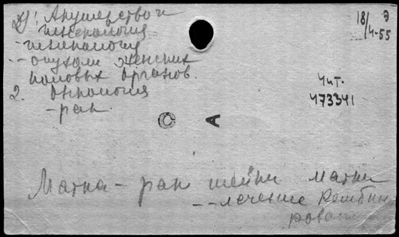 Акушерство и
гинекология
18/4-55
гинекология
-- опухоли женских
половых органов.
2. Онкология
Чит.
473341
- рак
А
Матка - рак шейки матки
-- лечение Комбини
рован